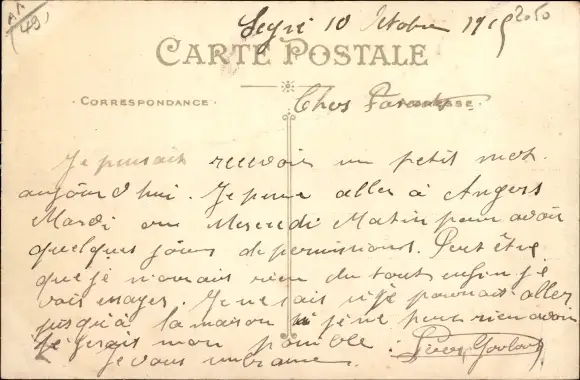 (49)
Segré 10 Octobre 1915
CARTE POSTALE
CORRESPONDANCE
Chers Parents
Je pensais recevoir un petit mot
aujourd'hui. Je pense aller à Angers
Mardi ou Mercredi Matin pour avoir
quelques jours de permissions. Peut être
que je n'aurais rien du tout enfin je
vais essayer. Je ne sais si je pourrais aller
jusqu'à la maison si je ne peux rien avoir
je ferais mon possible.
Je vous embrasse.